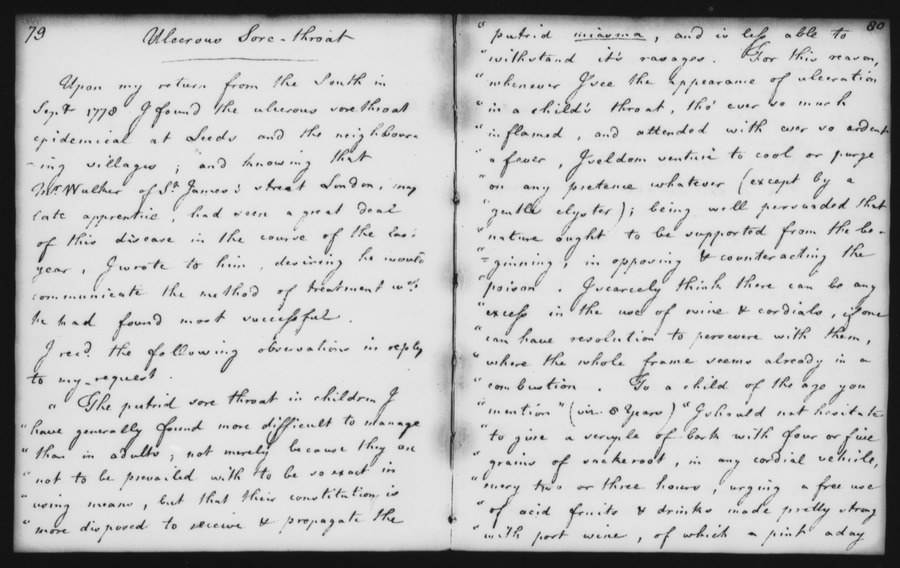 79
Ulcerous Sore-throat
Upon my return from the South in
Septr 1778 I found the ulcerous sore throat
epidemical at Leeds and the neighbour-
-ing villages ; and knowing that
Mr Walker of St James's street London, my
late apprentice, had seen a great deal
of this disease in the course of the last
year, I wrote to him, desiring he would
communicate the method of treatment wch
he had found most successful.
I recd. the following observations in reply
to my request.
" The putrid sore throat in children I
" have generally found more difficult to manage
" than in adults; not merely because they are
" not to be prevailed with to be so exact in
" using means, but that their constitution is
" more disposed to receive & propagate the
80
" putrid miasma, and is less able to
" withstand it's ravages. For this reason,
" whenever I see the appearance of ulceration
" in a child's throat, tho' ever so much
" inflamed, and attended with ever so ardent
" a fever, I seldom venture to cool or purge
" on any pretence whatever (except by a
" gentle clyster); being well persuaded that
" nature ought to be supported from the be-
" -ginning, in opposing & counteracting the
" poison. I scarcely think there can be any
" excess in the use of wine & cordials, if one
" can have resolution to persevere with them,
" where the whole frame seems already in a
" combustion. To a child of the age you
" mention" (viz. 8 Years) "I should not hesitate
" to give a scruple of bark with four or five
" grains of snakeroot, in any cordial vehicle,
" every two or three hours, urging a free use
" of acid fruits & drinks made pretty strong
" with port wine, of which a pint a day